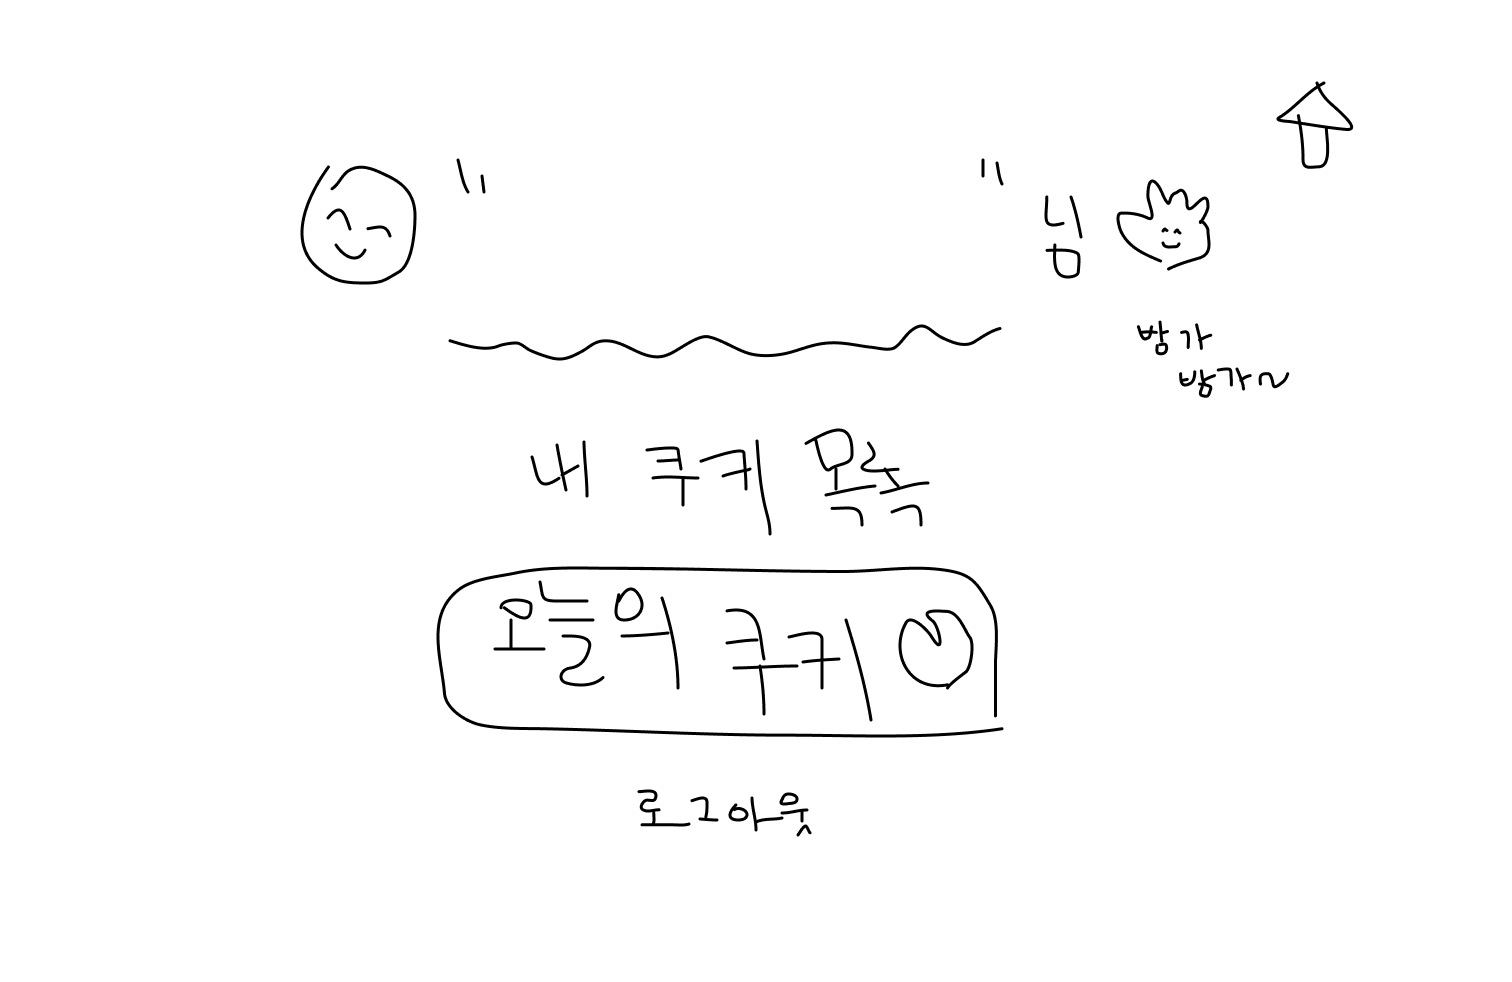 " " 님
방가
방가~
내 쿠키 목록
오늘의 쿠키
로그아웃